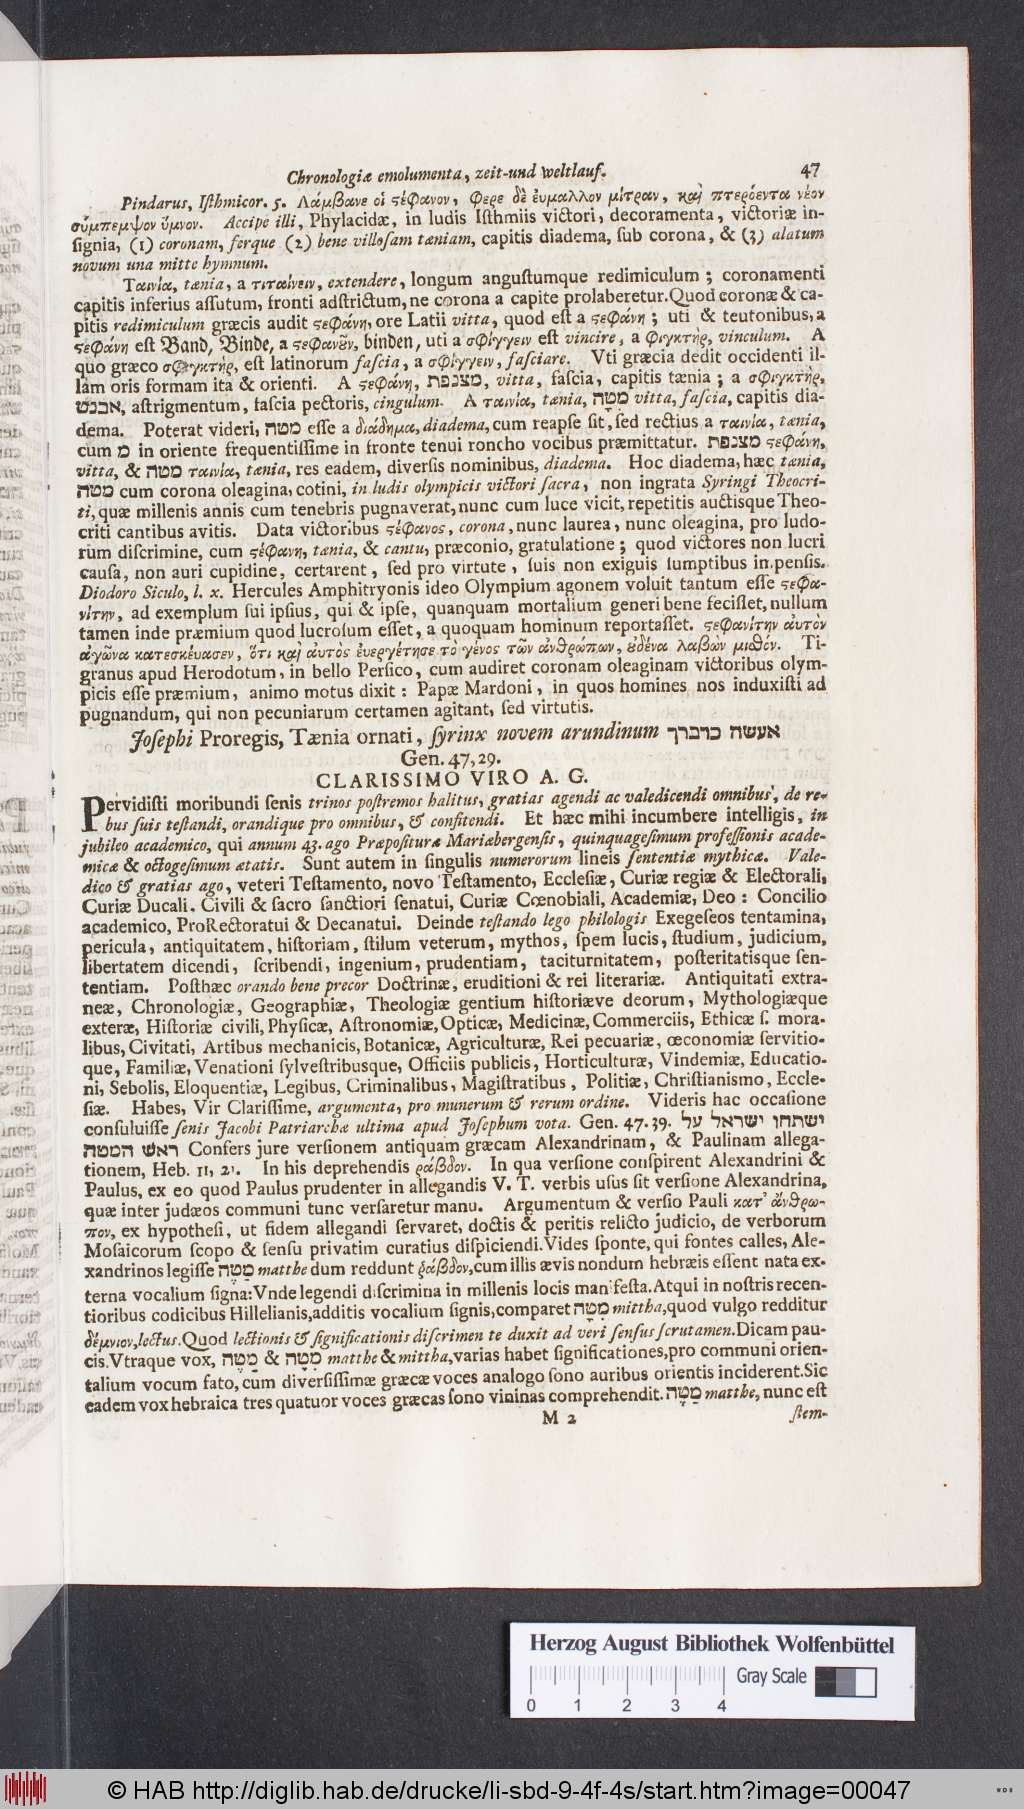 Chronologiæ emolumenta, zeit-und weltlauf. 47
Pindarus, Iſthmicor. 5. Λάμβανε οἱ ςέφανον, φερε δὲ ἐυμαλλον μίτραν, καὶ πτερόεντα νέον
σύμπεμψον ὕμνον. Accipe illi, Phylacidæ, in ludis Iſthmiis victori, decoramenta, victoriæ in-
ſignia, (1) coronam, ferque (2) bene villoſam tæniam, capitis diadema, ſub corona, & (3) alatum
novum una mitte hymnum.
Ταινία, tænia, a τιταίνειν, extendere, longum anguſtumque redimiculum ; coronamenti
capitis inferius aſſutum, fronti adſtrictum, ne corona a capite prolaberetur. Quod coronæ & ca-
pitis redimiculum græcis audit ςεφάνη, ore Latii vitta, quod eſt a ςεφάνη ; uti & teutonibus, a
ςεφάνη eſt Band, Binde, a ςεφανῦν, binden, uti a σφίγγειν eſt vincire, a φιγκτὴρ, vinculum. A
quo græco σφιγκτήρ, eſt latinorum faſcia, a σφίγγειν, faſciare. Vti græcia dedit occidenti il-
lam oris formam ita & orienti. A ςεφάνη, מצנפת, vitta, faſcia, capitis tænia ; a σφιγκτὴρ,
אבנט, aſtrigmentum, faſcia pectoris, cingulum. A ταινία, tænia, מטה vitta, faſcia, capitis dia-
dema. Poterat videri, מטה eſſe a διάδημα, diadema, cum reapſe ſit, ſed rectius a ταινία, tænia,
cum מ in oriente frequentiſſime in fronte tenui roncho vocibus præmittatur. מצנפת ςεφάνη,
vitta, & מטה ταινία, tænia, res eadem, diverſis nominibus, diadema. Hoc diadema, hæc tænia,
מטה cum corona oleagina, cotini, in ludis olympicis victori ſacra, non ingrata Syringi Theocri-
ti, quæ millenis annis cum tenebris pugnaverat, nunc cum luce vicit, repetitis auctisque Theo-
criti cantibus avitis. Data victoribus ςέφανος, corona, nunc laurea, nunc oleagina, pro ludo-
rum diſcrimine, cum ςέφανη, tænia, & cantu, præconio, gratulatione ; quod victores non lucri
cauſa, non auri cupidine, certarent, ſed pro virtute, ſuis non exiguis ſumptibus impenſis.
Diodoro Siculo, l. x. Hercules Amphitryonis ideo Olympium agonem voluit tantum eſſe ςεφα-
νίτην, ad exemplum ſui ipſius, qui & ipſe, quanquam mortalium generi bene feciſſet, nullum
tamen inde præmium quod lucroſum eſſet, a quoquam hominum reportaſſet. ςεφανίτην αυτὸν
ἀγῶνα κατεσκέυασεν, ὅτι καὶ αυτὸς ἐυεργέτησε τὸ γένος τῶν ἀνθρώπων, ȣδένα λαβὼν μισθόν. Ti-
granus apud Herodotum, in bello Perſico, cum audiret coronam oleaginam victoribus olym-
picis eſſe præmium, animo motus dixit : Papæ Mardoni, in quos homines nos induxiſti ad
pugnandum, qui non pecuniarum certamen agitant, ſed virtutis.
Joſephi Proregis, Tænia ornati, ſyrinx novem arundinum אעשה כדברך
Gen. 47, 29.
CLARISSIMO VIRO A. G.
Pervidiſti moribundi ſenis trinos poſtremos halitus, gratias agendi ac valedicendi omnibus, de re-
bus ſuis teſtandi, orandique pro omnibus, & confitendi. Et hæc mihi incumbere intelligis, in
jubileo academico, qui annum 43. ago Præpoſituræ Mariæbergenſis, quinquageſimum profeſſionis acade-
micæ & octogeſimum ætatis. Sunt autem in ſingulis numerorum lineis ſententiæ mythicæ. Vale-
dico & gratias ago, veteri Teſtamento, novo Teſtamento, Eccleſiæ, Curiæ regiæ & Electorali,
Curiæ Ducali, Civili & ſacro ſanctiori ſenatui, Curiæ Cœnobiali, Academiæ, Deo : Concilio
academico, ProRectoratui & Decanatui. Deinde teſtando lego philologis Exegeſeos tentamina,
pericula, antiquitatem, hiſtoriam, ſtilum veterum, mythos, ſpem lucis, ſtudium, judicium,
libertatem dicendi, ſcribendi, ingenium, prudentiam, taciturnitatem, poſteritatisque ſen-
tentiam. Poſthæc orando bene precor Doctrinæ, eruditioni & rei literariæ. Antiquitati extra-
neæ, Chronologiæ, Geographiæ, Theologiæ gentium hiſtoriæve deorum, Mythologiæque
exteræ, Hiſtoriæ civili, Phyſicæ, Aſtronomiæ, Opticæ, Medicinæ, Commerciis, Ethicæ ſ. mora-
libus, Civitati, Artibus mechanicis, Botanicæ, Agriculturæ, Rei pecuariæ, œconomiæ ſervitio-
que, Familiæ, Venationi ſylveſtribusque, Officiis publicis, Horticulturæ, Vindemiæ, Educatio-
ni, Sebolis, Eloquentiæ, Legibus, Criminalibus, Magiſtratibus, Politiæ, Chriſtianismo, Eccle-
ſiæ. Habes, Vir Clariſſime, argumenta, pro munerum & rerum ordine. Videris hac occaſione
conſuluiſſe ſenis Jacobi Patriarchæ ultima apud Joſephum vota. Gen. 47. 39. ישתחו ישראל על
ראש המטה Confers jure verſionem antiquam græcam Alexandrinam, & Paulinam allega-
tionem, Heb. 11, 21. In his deprehendis ράβδον. In qua verſione conſpirent Alexandrini &
Paulus, ex eo quod Paulus prudenter in allegandis V. T. verbis uſus ſit verſione Alexandrina,
quæ inter judæos communi tunc verſaretur manu. Argumentum & verſio Pauli κατ' ἄνθρω-
πον, ex hypotheſi, ut fidem allegandi ſervaret, doctis & peritis relicto judicio, de verborum
Moſaicorum ſcopo & ſenſu privatim curatius diſpiciendi. Vides ſponte, qui fontes calles, Ale-
xandrinos legiſſe מַטֶה matthe dum reddunt ῥάβδον, cum illis ævis nondum hebræis eſſent nata ex-
terna vocalium ſigna: Vnde legendi diſcrimina in millenis locis manifeſta. Atqui in noſtris recen-
tioribus codicibus Hillelianis, additis vocalium ſignis, comparet מִטָה mittha, quod vulgo redditur
δέμνιον, lectus. Quod lectionis & ſignificationis diſcrimen te duxit ad veri ſenſus ſcrutamen. Dicam pau-
cis. Vtraque vox, מִטָה & מַטֶה matthe & mittha, varias habet ſignificationes, pro communi orien-
talium vocum fato, cum diverſiſſimæ græcæ voces analogo ſono auribus orientis inciderent. Sic
eadem vox hebraica tres quatuor voces græcas ſono vininas comprehendit. מַטֶה matthe, nunc eſt
M 2 ſtem-
Herzog August Bibliothek Wolfenbüttel
Gray Scale
0 1 2 3 4
© HAB http://diglib.hab.de/drucke/li-sbd-9-4f-4s/start.htm?image=00047